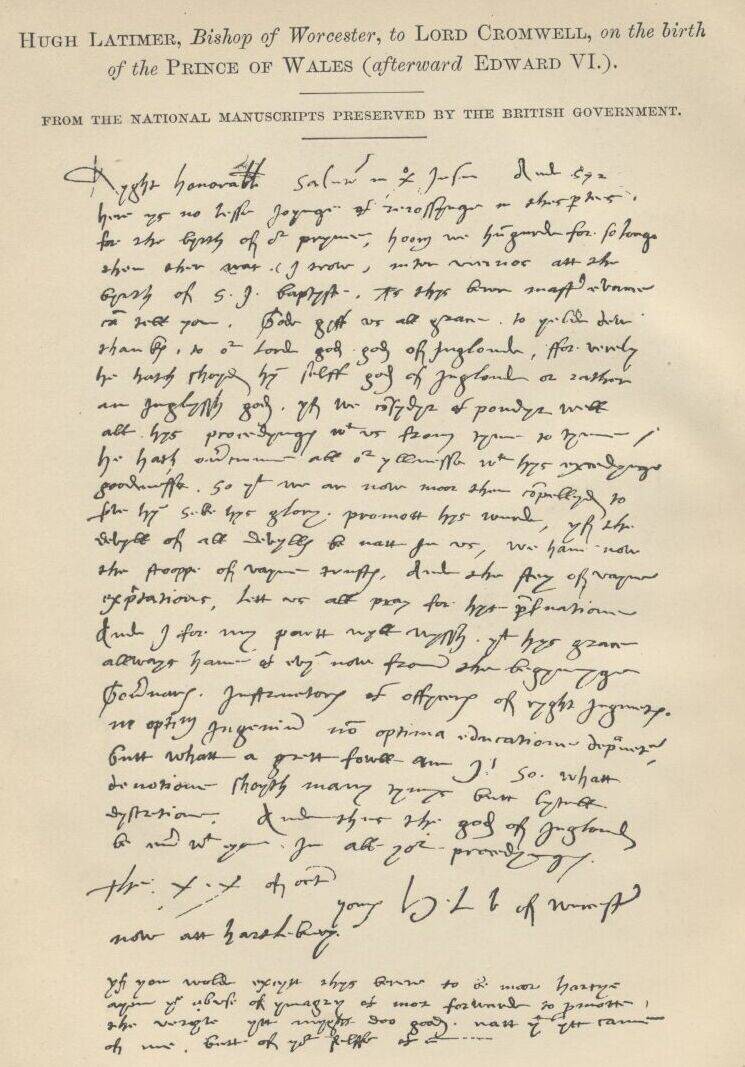 HUGH LATIMER, Bishop of Worcester, to LORD CROMWELL, on the birth
of the PRINCE OF WALES (afterward EDWARD VI.).
FROM THE NATIONAL MANUSCRIPTS PRESERVED BY THE BRITISH GOVERNMENT.
Ryght honorable Salutē in X Jesu And Syr
here ys no lesse joynge & reiossynge in thes ptees
for the byrth of or prynce, hoom we hūgurde for so longe
then ther was (I trow), inter vicinos att the
byrth of S. J. baptyste. As thys berer mastr evance
cā tell you. Gode gyff us all grace to yelde dew
thankꝭ to or lord god god of Inglonde, ffor verely
he hath shoyd hym selff god of Inglond or rather
an Inglyssh god. yf we cōsydyr & pondyr well
all hys procedyngꝭ wt us from tyme to tyme /
he hath overcumme all or yllnesse wt hys excedynge
goodnesse. So yt we ar now moor then cōpellyd to
serve hym, seke hys glory, promott hys wurde, yf the
devyll of all devyllꝭ be natt in us, we have now
the stoppe of vayne trustꝭ, And the stey of vayne
expectations, lett us all pray for hys pservatione
And I for my partt wyll wyssh yt hys grace
allways have & evyn now from the begynynge
Governars, Instructorꝭ & offycerꝭ of ryght jugmētt.
ne optimū Ingeniū nō optima educatione depravetr
butt whatt a grett fowll am I! So, whatt
devotione shoyth many tymys butt lytell
dyscretione. And thus the god of Inglond
be ever wt you In all yor procedyngꝭ.
the X.X of octr
yours H L b of wurcestr
now att hartlebury.
yf you wolde excytt thys berer to be moor hartye
ayen ye abuse of ymagry & mor forwarde to pmotte
the veryte ytt myght doo good. natt yt ytt came
of me, butt of yor selffe & c